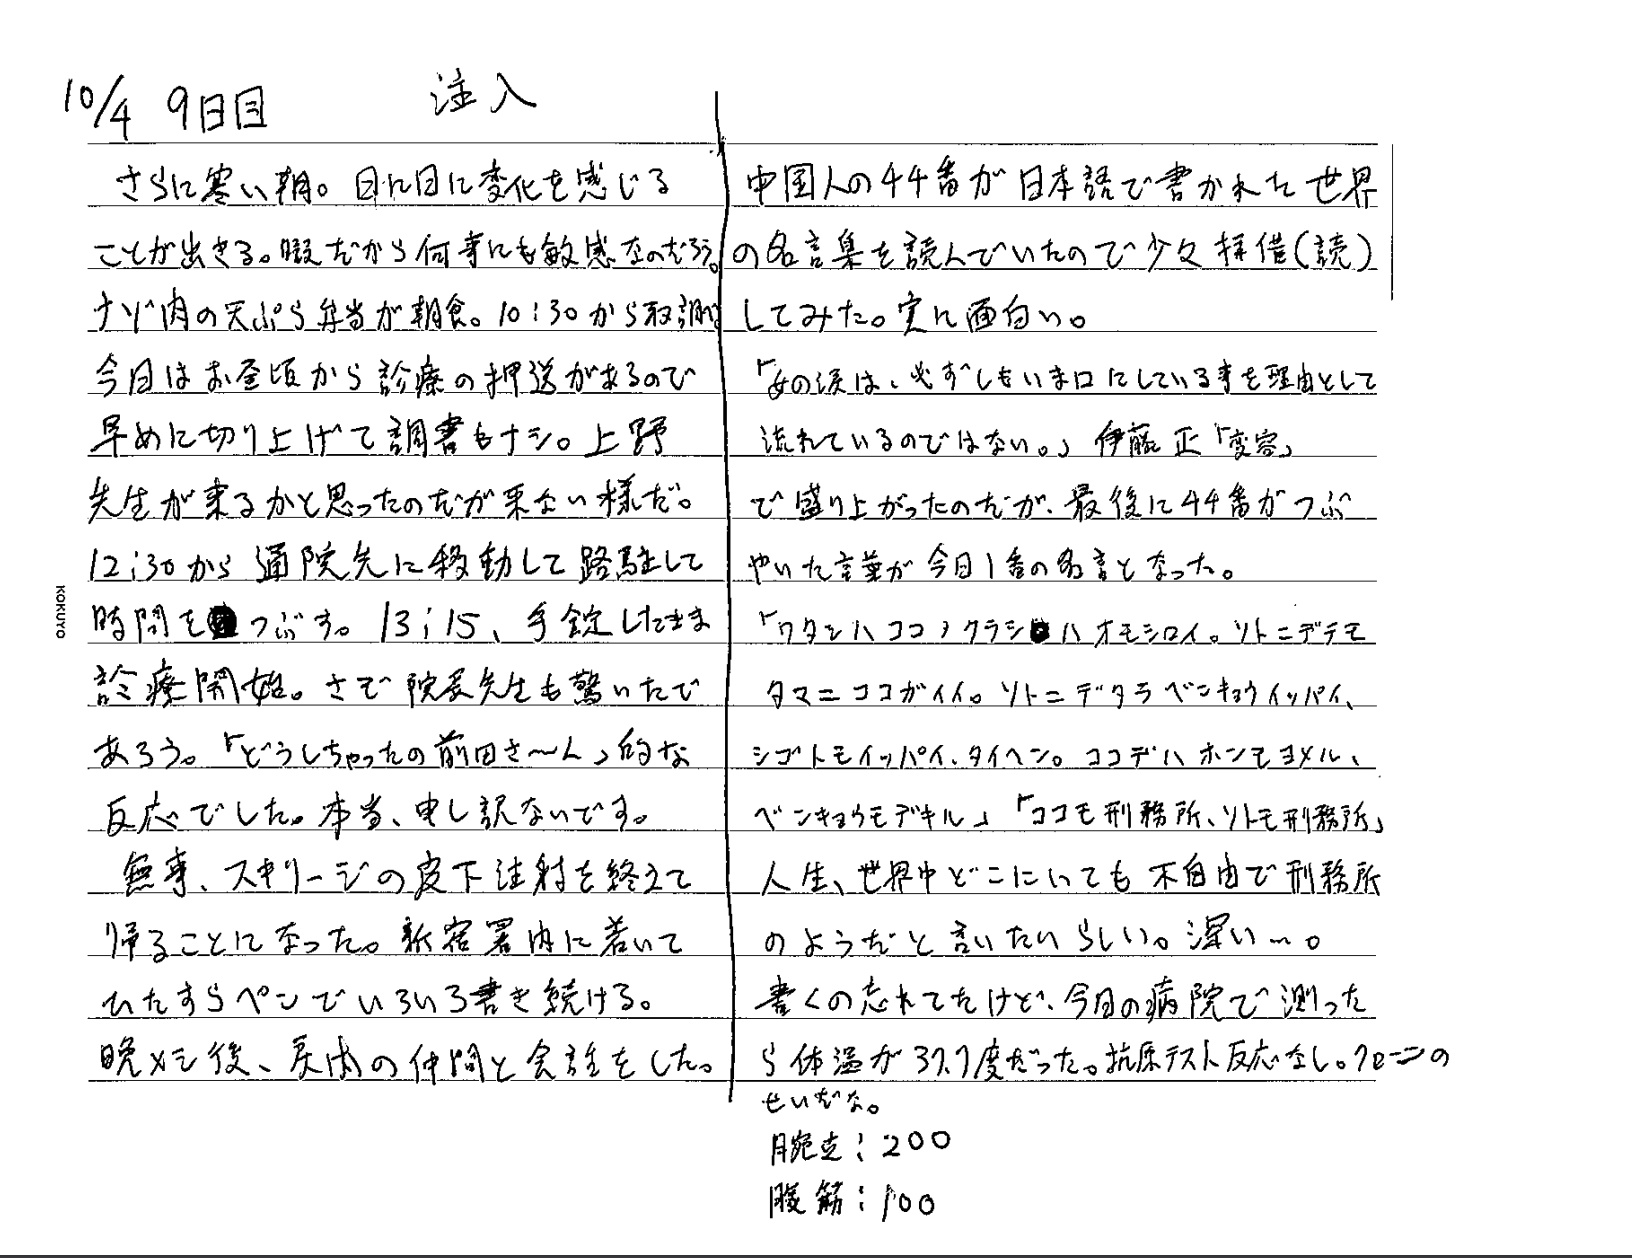 10/4 9日目 注入
さらに寒い朝。日に日に変化を感じる
ことが出きる。暇だから何事にも敏感なのだろう。
ナゾ肉の天ぷら弁当が朝食。10:30から取調。
今日はお昼頃から診療の押送があるので
早めに切り上げて調書もナシ。上野
先生が来るかと思ったのだが来ない様だ。
12:30から通院先に移動して路駐して
時間をつぶす。13:15、手錠したまま
診療開始。さぞ院長先生も驚いたで
あろう。「どうしちゃったの前田さ〜ん」的な
反応でした。本当、申し訳ないです。
無事、スキリージの皮下注射を終えて
帰ることになった。新宿署内に着いて
ひたすらペンでいろいろ書き続ける。
晩メシ後、房内の仲間と会話をした。
中国人の44番が日本語で書かれた世界
の名言集を読んでいたので少々拝借(読)
してみた。実に面白い。
「女の涙は、必ずしもいま口にしている事を理由として
流れているのではない。」伊藤 正「変容」
で盛り上がったのだが、最後に44番がつぶ
やいた言葉が今日1番の名言となった。
「ワタシハココノクラシハオモシロイ。ソトニデテモ
タマニココガイイ。ソトニデタラベンキョウイッパイ、
シゴトモイッパイ、タイヘン。ココデハホンモヨメル、
ベンキョウモデキル」「ココモ刑務所、ソトモ刑務所」
人生、世界中どこにいても不自由で刑務所
のようだと言いたいらしい。深い〜。
書くの忘れてたけど、今日の病院で測った
ら体温が37.7度だった。抗原テスト反応なし。クローンの
せいだな。
腕立:200
腹筋:100
KOKUYO